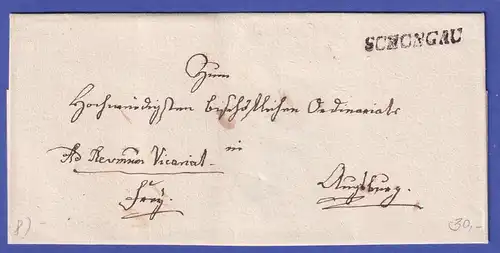 SCHONGAU
Zum
Hochwürdigsten Bischöflichen Ordinariate
Ad Revmum Vicariat.
in
Augsburg.
frey.
8)
30,-